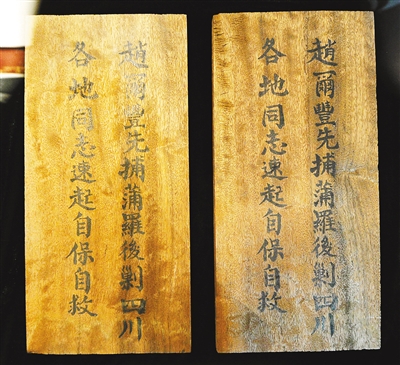 趙爾豐先捕蒲羅後剿四川
各地同志速起自保自救
趙爾豐先捕蒲羅後剿四川
各地同志速起自保自救